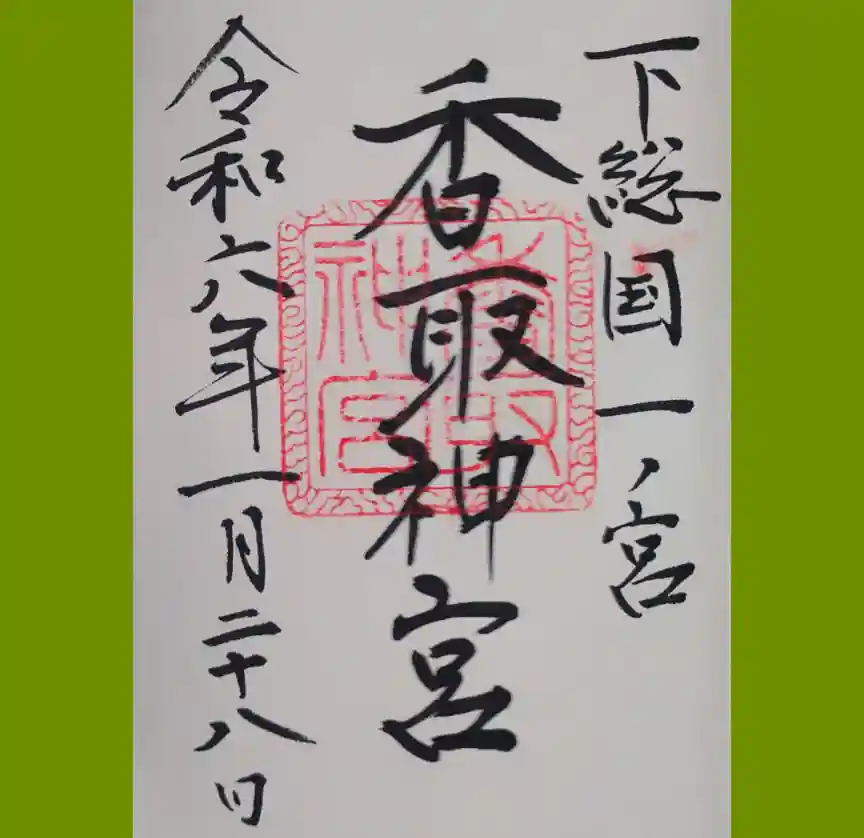 下総国一ノ宮
香取神宮
香取神宮
令和六年一月二十八日